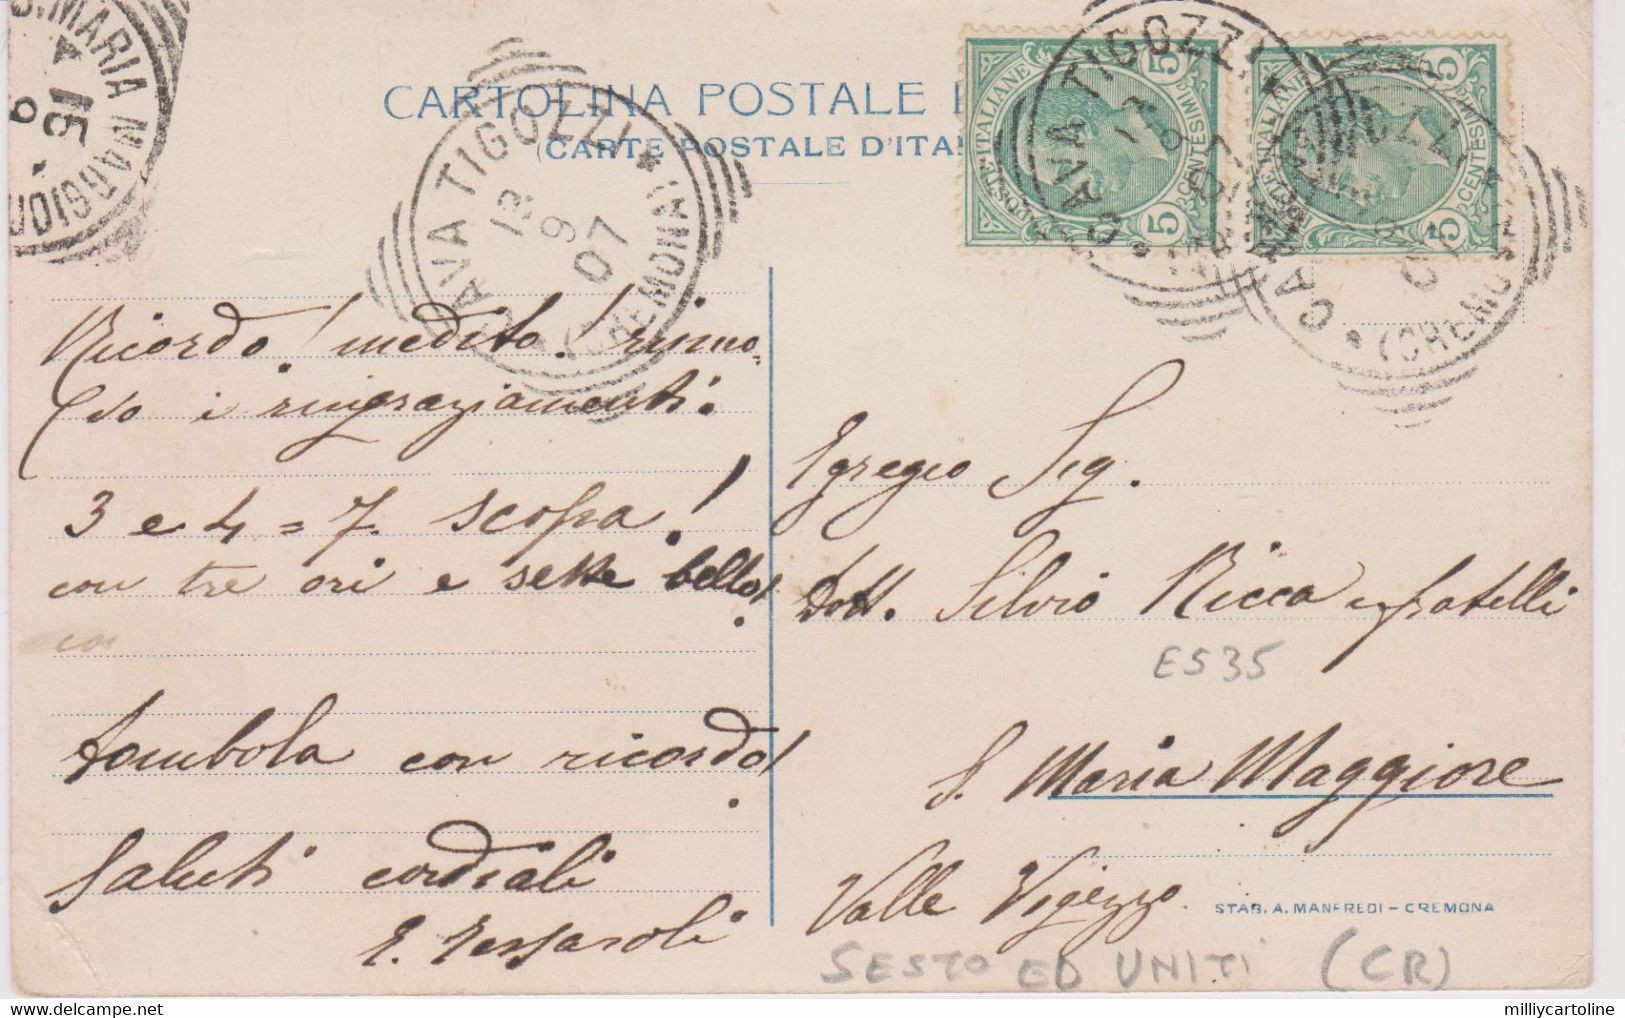 CARTOLINA POSTALE
(CARTE POSTALE D'ITA
S. MARIA MAGGIOR
15
9
CAVA TIGOZZI
13
9
07
(CREMONA)
CAVA TIGOZZI
POSTE ITALIANE
5 CENTESIMI 5
POSTE ITALIANE
5 CENTESIMI 5
(CREMONA)
Ricordo! inedito! rinno-
vo i ringraziamenti.
3 e 4 = 7. scopa!
con tre ori e sette bello!
tombola con ricordo!
Saluti cordiali
Egregio Sig.
Dott. Silvio Ricca e fratelli
E535
S. Maria Maggiore
Valle Vigezzo
STAB. A. MANFREDI – CREMONA
SESTO ED UNITI (CR)
millycartoline